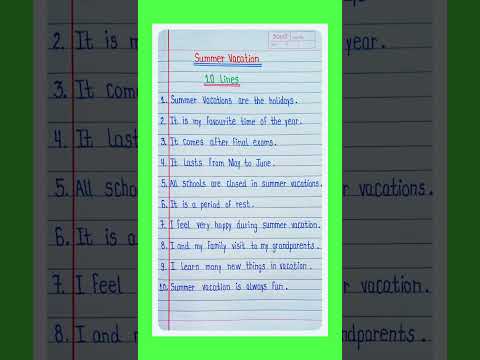 Summer Vacation
10 Lines
1. Summer Vacations are the holidays.
2. It is my favourite time of the year.
3. It comes after final exams.
4. It lasts from May to June.
5. All schools are closed in summer vacations.
6. It is a period of rest.
7. I feel very happy during summer vacation.
8. I and my family visit to my grandparents.
9. I learn many new things in vacation.
10. Summer vacation is always fun.
2. It is m
year.
3. It com
4. It la
5. All scho
vacations.
6. It is a
7. I feel
vacation.
8. I and m
dparents.